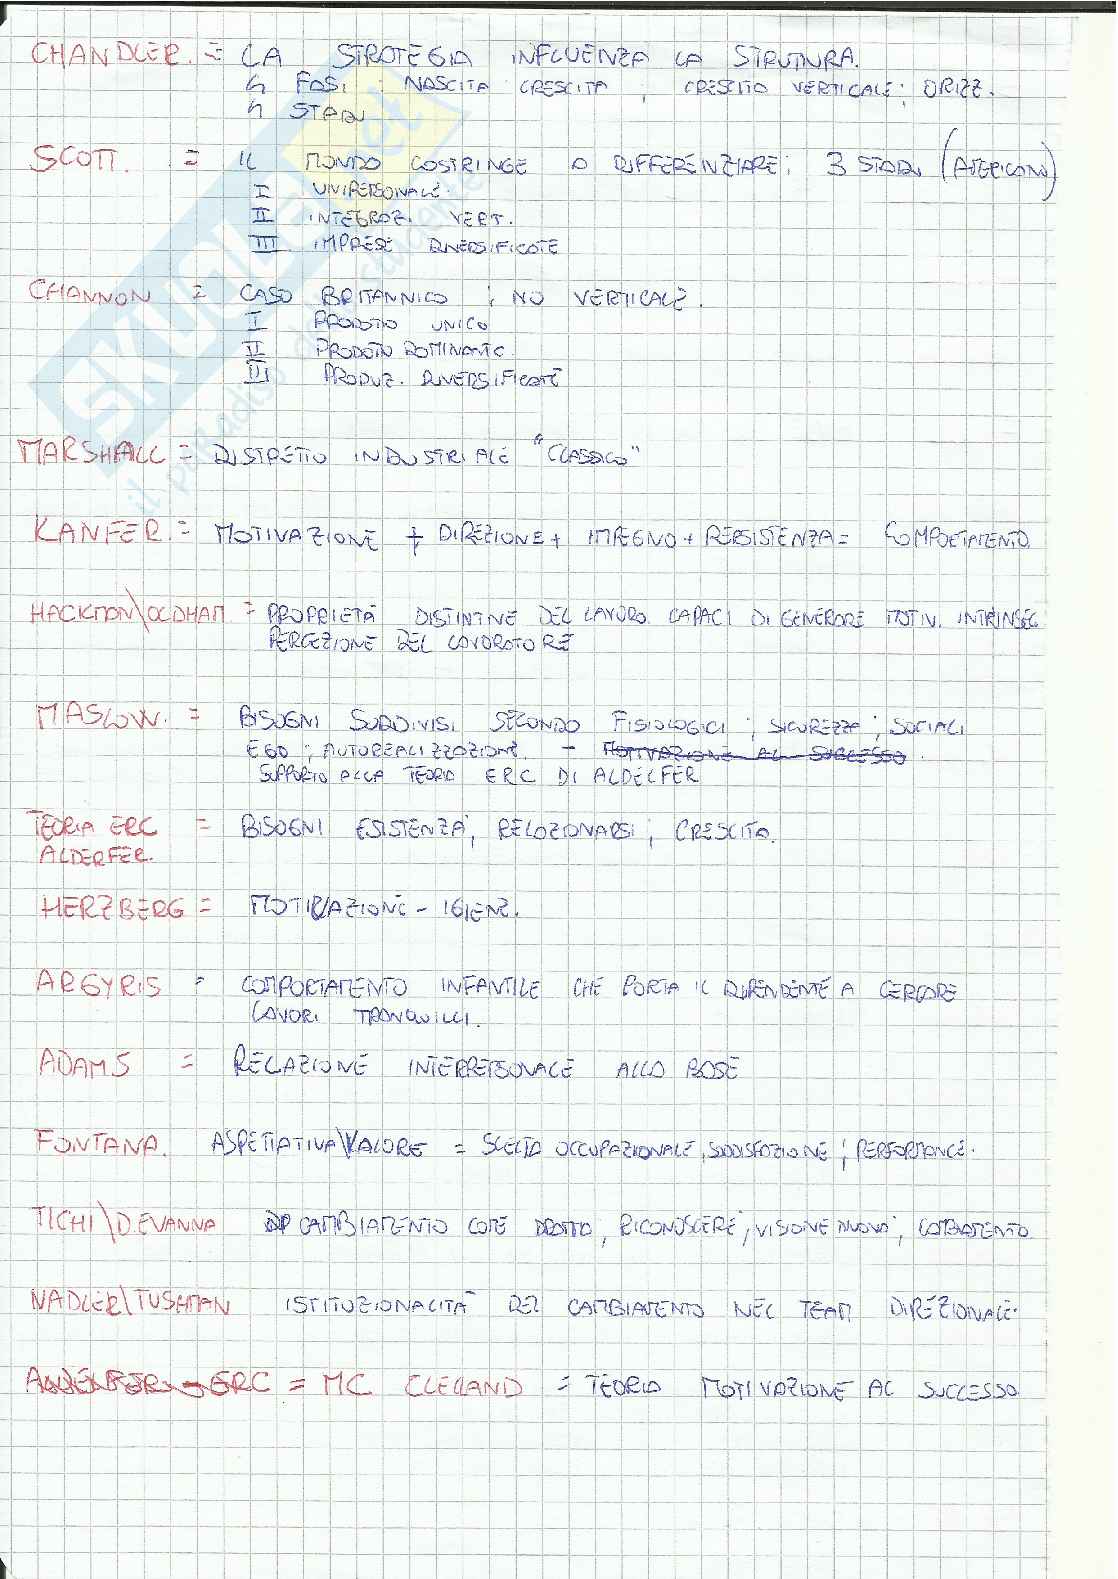 CHANDLER. = LA STRATEGIA INFLUENZA LA STRUTTURA.
↳ FASI : NASCITA CRESCITA ; CRESCITA VERTICALE ; ORIZZ.
↳ STADI
SCOTT. = IL MONDO COSTRINGE A DIFFERENZIARE; 3 STADI (AMERICANI)
I UNIPERSONALE.
II INTEGRAZ. VERT.
III IMPRESE DIVERSIFICATE
CHANNON = CASO BRITANNICO ; NO VERTICALE.
I PRODOTTO UNICO
II PRODOTTO DOMINANTE.
III PRODUZ. DIVERSIFICATE
MARSHALL = DISTRETTO INDUSTRIALE "CLASSICO"
KANFER. = MOTIVAZIONE + DIREZIONE + IMPEGNO + PERSISTENZA = COMPORTAMENTO.
HACKMAN\OLDHAM = PROPRIETÀ DISTINTIVE DEL LAVORO CAPACI DI GENERARE MOTIV. INTRINSEC
PERCEZIONE DEL LAVORATORE
MASLOW. = BISOGNI SUDDIVISI SECONDO FISIOLOGICI ; SICUREZZA ; SOCIALI
EGO ; AUTOREALIZZAZIONE. - MOTIVAZIONE AL SUCCESSO.
SUPPORTO ALLA TEORIA ERC DI ALDELFER
TEORIA ERC = BISOGNI ESISTENZA ; RELAZIONARSI ; CRESCITA.
ALDERFER.
HERZBERG = MOTIVAZIONE - IGIENE.
ARGYRIS = COMPORTAMENTO INFANTILE CHE PORTA IL DIPENDENTE A CERCARE
LAVORI TRANQUILLI.
ADAMS = RELAZIONE INTERPERSONALE ALLA BASE
FONTANA. ASPETTATIVA\VALORE = SCELTA OCCUPAZIONALE, SODDISFAZIONE ; PERFORMANCE.
TICHI\DEVANNA CAMBIAMENTO COME DRAMMA, RICONOSCERE ; VISIONE NUOVA ; CAMBIAMENTO.
NADLER\TUSHMAN ISTITUZIONALITÀ DEL CAMBIAMENTO NEL TEAM DIREZIONALE.
ALDERFER - ERC = MC CLELLAND = TEORIA MOTIVAZIONE AL SUCCESSO
SKUOLA.net
il paradiso dello studente